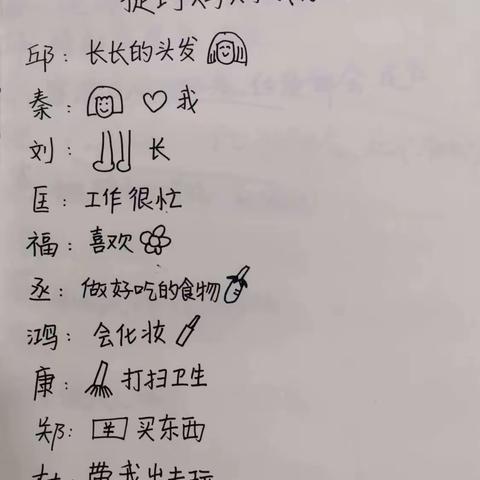 邱：长长的头发
秦：♡我
刘：长
匡：工作很忙
福：喜欢
丞：做好吃的食物
鸿：会化妆
康：打扫卫生
郑：买东西
带我出去玩